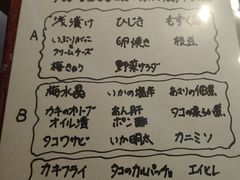 浅漬け ひじき もずく
いぶりがっこ 卵焼き 枝豆
クリームチーズ
梅きゅう 野菜サラダ
B
梅水晶 いかの塩辛 あさりの佃煮
カキのオリーブ あん肝 タコの柔らか煮
オイル漬 ポン酢
タコワサビ いか明太 カニミソ
カキフライ タコのカルパッチョ エイヒレ